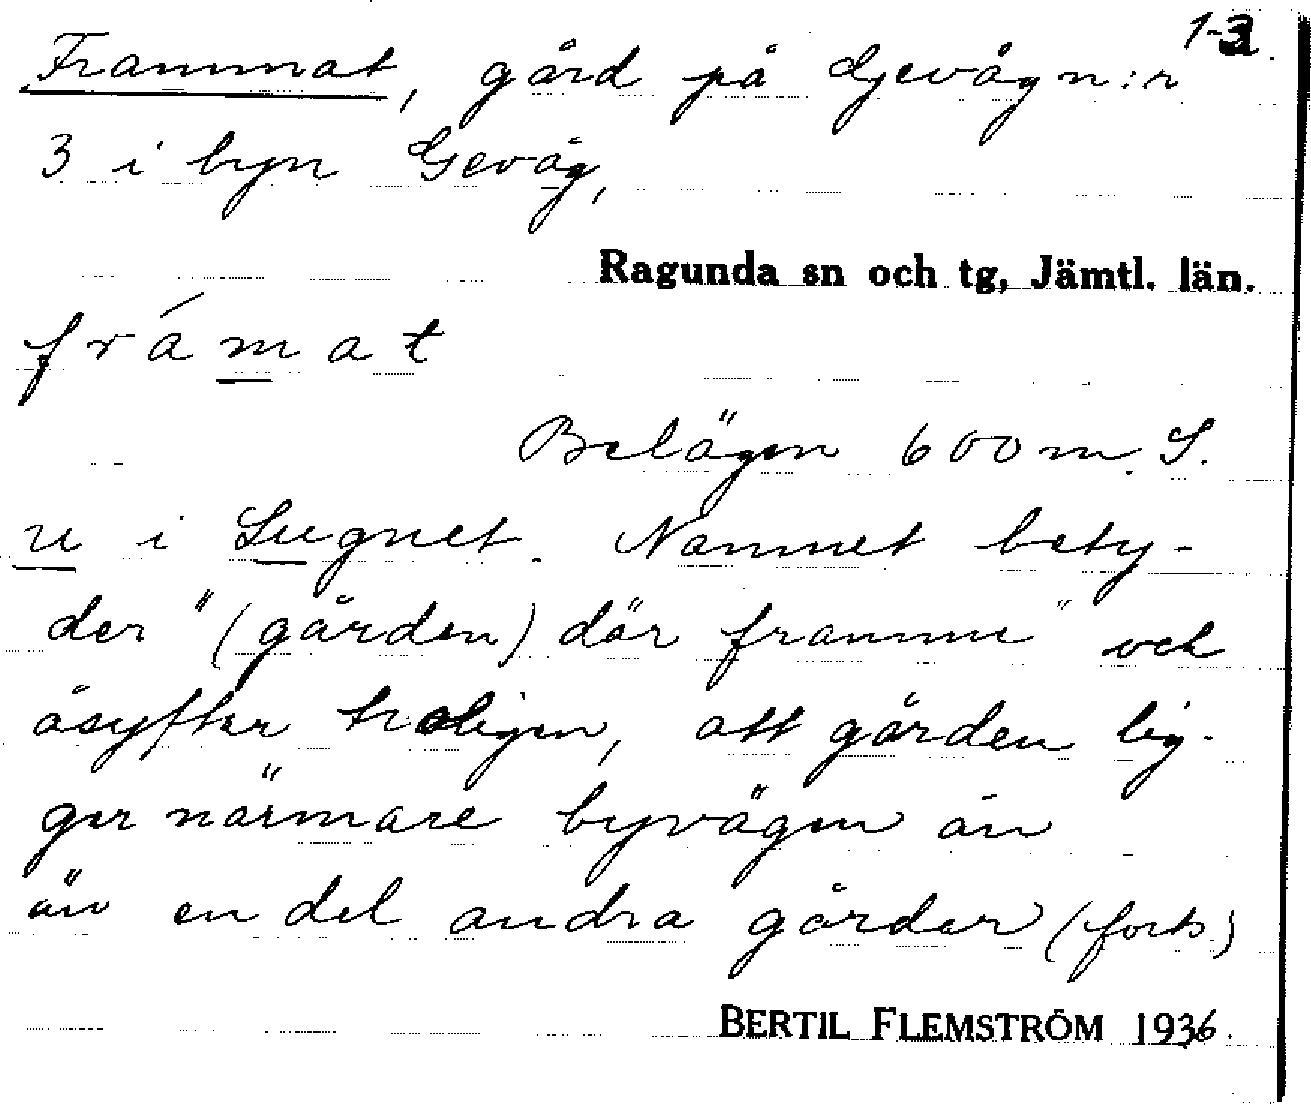 1-3
Frammat, gård på Gevåg n:r
3 i byn Gevåg,
Ragunda sn och tg, Jämtl. län.
frámat
Belägen 600 m. S.
u i Lugnet. Namnet bety-
der "(gården) där framme" och
åsyftar troligen, att gården lig-
ger närmare byvägen än
än en del andra gårdar (forts.)
BERTIL FLEMSTRÖM 1936.